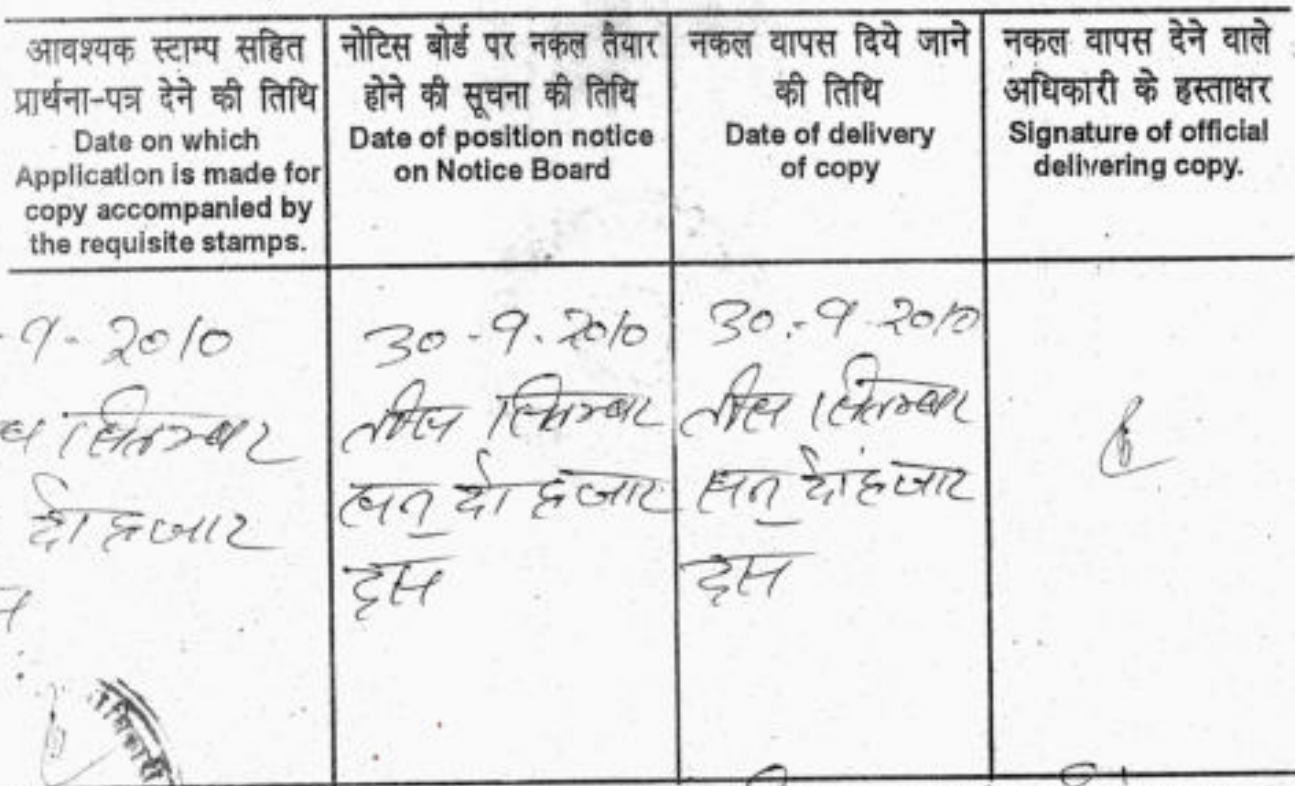 आवश्यक स्टाम्प सहित
प्रार्थना-पत्र देने की तिथि
Date on which
Application is made for
copy accompanied by
the requisite stamps.
नोटिस बोर्ड पर नकल तैयार
होने की सूचना की तिथि
Date of position notice
on Notice Board
नकल वापस दिये जाने
की तिथि
Date of delivery
of copy
नकल वापस देने वाले
अधिकारी के हस्ताक्षर
Signature of official
delivering copy.
-9-2010
सितम्बर
दो हजार
30-9-2010
तीस सितम्बर
सन् दो हजार
दस
30-9-2010
तीस सितम्बर
सन् दो हजार
दस